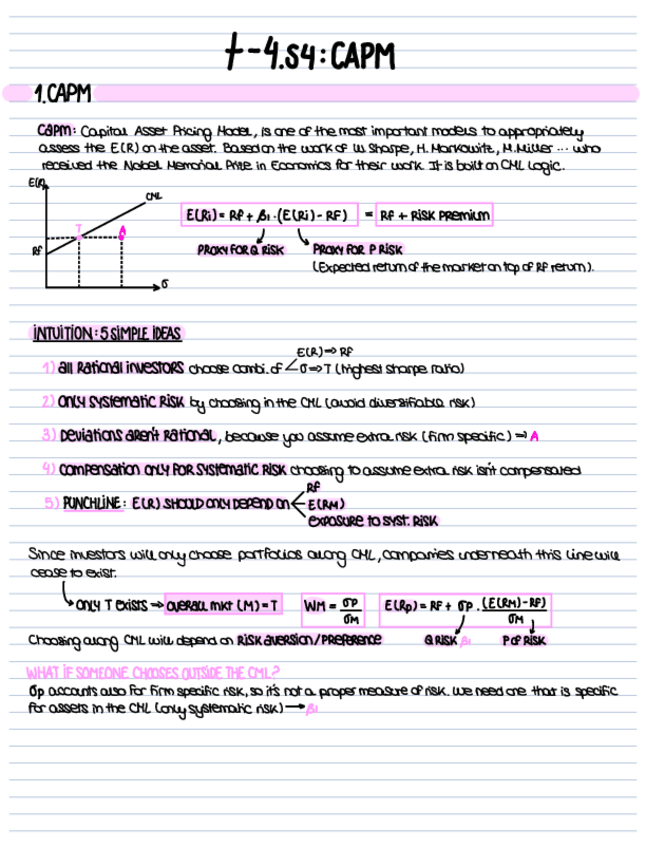 t-4.S4: CAPM
1. CAPM
CAPM: Capital Asset Pricing Model, is one of the most important models to appropriately
assess the E(R) on the asset. Based on the work of W. Sharpe, H. Markowitz, M. Miller ... who
received the Nobel Memorial Prize in Economics for their work. It is built on CML logic.
E(R)
CML
T
A
RF
σ
E(Ri) = RF + βi · (E(Ri) - RF) = RF + RISK PREMIUM
PROXY FOR Q RISK
PROXY FOR P RISK
(Expected return of the market on top of RF return).
INTUITION: 5 SIMPLE IDEAS
E(R) ⇒ RF
1) All Rational investors choose combi. of σ ⇒ T (highest sharpe ratio)
2) Only Systematic Risk by choosing in the CML (avoid diversifiable risk)
3) Deviations aren't Rational, because you assume extra risk (firm specific) ⇒ A
4) Compensation only for systematic risk choosing to assume extra risk isn't compensated
RF
5) PUNCHLINE: E(R) SHOULD ONLY DEPEND ON E(RM)
EXPOSURE TO SYST. RISK
Since investors will only choose portfolios along CML, companies underneath this line will
cease to exist.
ONLY T EXISTS ⇒ overall mkt (M) = T
WM = σP / σM
E(Rp) = RF + σp · (E(RM) - RF) / σM
Choosing along CML will depend on RISK AVERSION/PREFERENCE
Q RISK βi
P OF RISK
WHAT IF SOMEONE CHOOSES OUTSIDE THE CML?
σp accounts also for firm specific risk, so it's not a proper measure of risk. We need one that is specific
for assets in the CML (only systematic risk) → βi